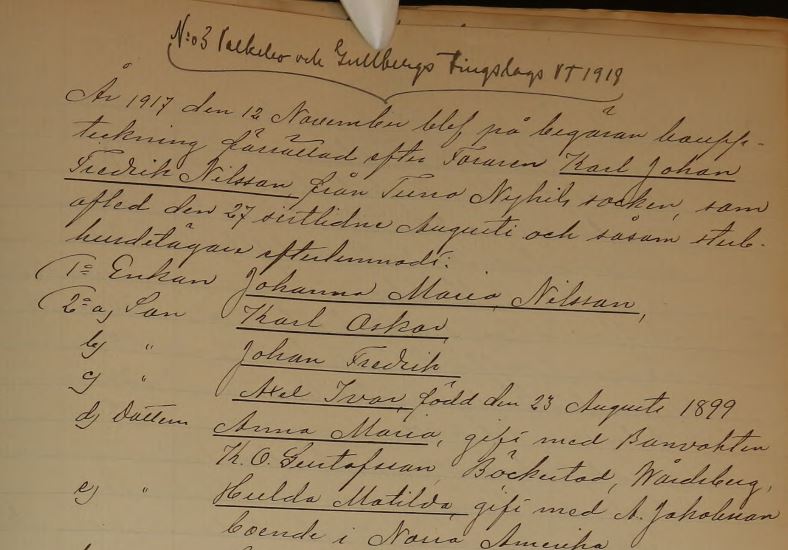 N:o 3 Valkebo och Gullbergs Tingslags VT 1918
År 1917 den 12 November blef på begäran boupp-
teckning förrättad efter Foraren Karl Johan
Fredrik Nilsson, från Tuna Nykils socken, som
afled den 27 sistlidne Augusti och såsom sterb-
husdelägare efterlemnade:
1:o Enkan Johanna Maria Nilsson,
2:o a) Son Karl Oskar,
b) " Johan Fredrik
c) " Axel Ivar, född den 23 Augusti 1899
d) Dottern Anna Maria, gift med Banvakten
K. O. Gustafsson, Böckestad, Wårdsberg,
e) " Hulda Matilda, gift med A. Jakobsson
boende i Norra Amerika